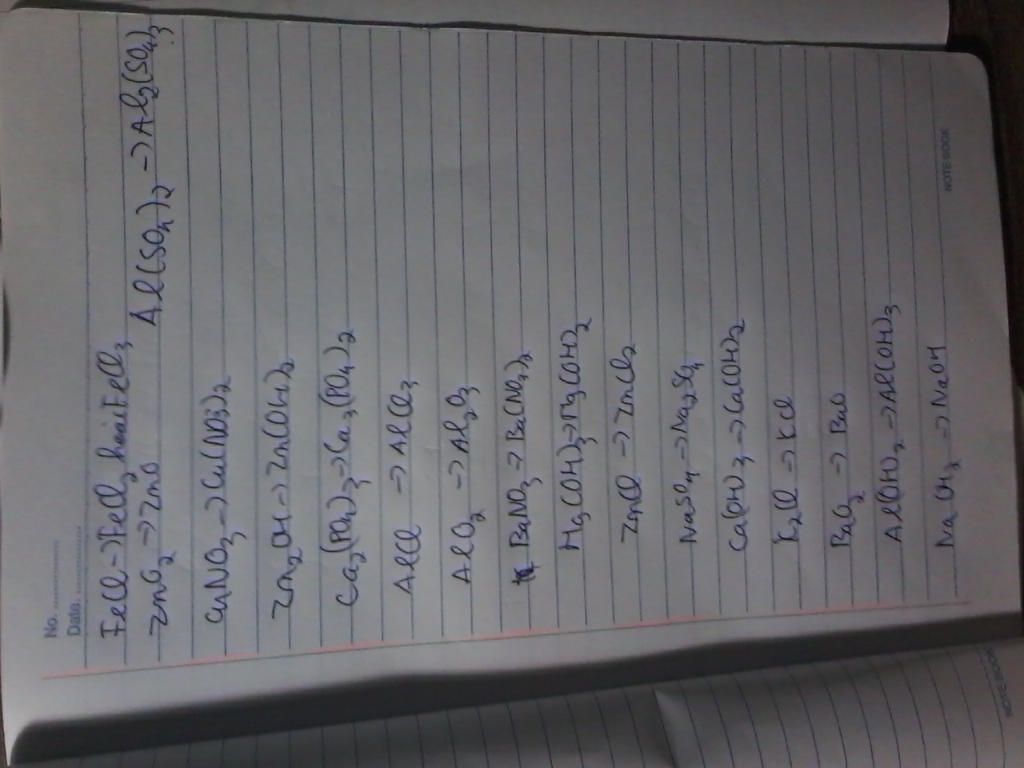 No. ..............
Date. ..............
FeCl->FeCl2 hoặc FeCl3
ZnO2 -> ZnO
Al(SO4)2 -> Al2(SO4)3
CuNO3 -> Cu(NO3)2
Zn2OH -> Zn(OH)2
Ca2(PO4)3 -> Ca3(PO4)2
AlCl -> AlCl3
AlO2 -> Al2O3
BaNO3 -> Ba(NO3)2
Mg(OH)3 -> Mg(OH)2
ZnCl -> ZnCl2
NaSO4 -> Na2SO4
Ca(OH)3 -> Ca(OH)2
K2Cl -> KCl
BaO2 -> BaO
Al(OH)2 -> Al(OH)3
-> NaOH
NOTE BOOK
NOTE BOOK